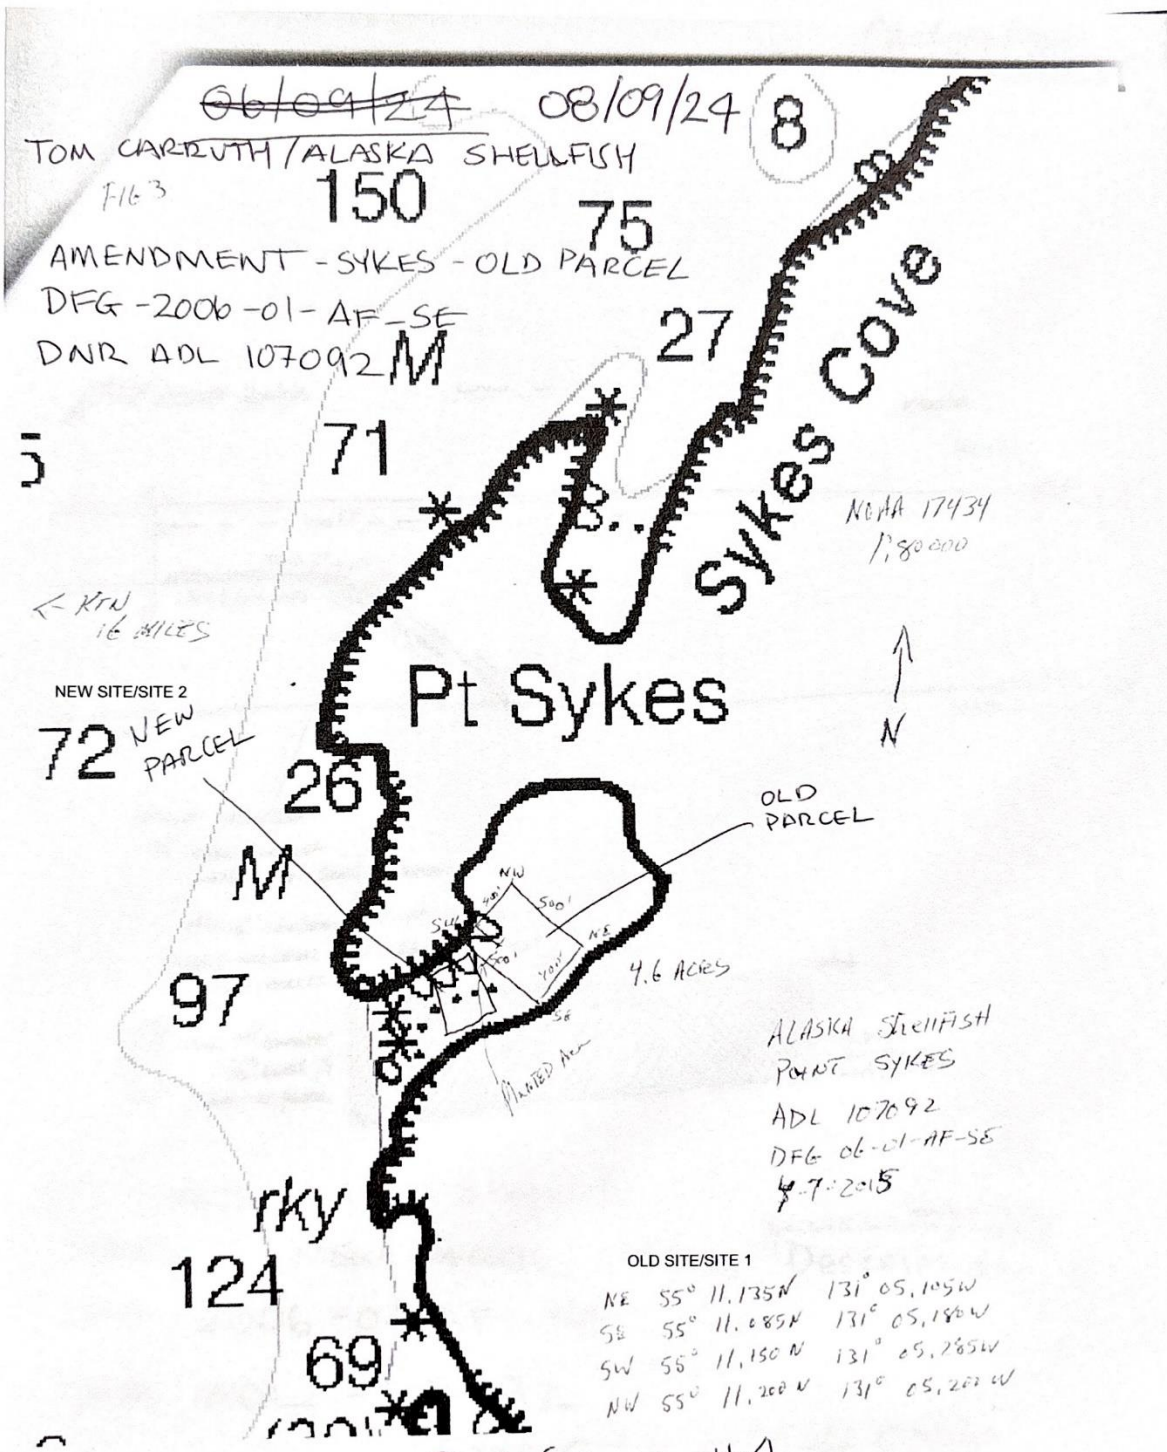 06/09/24 08/09/24 8
TOM CARRUTH/ALASKA SHELLFISH
FIG 3
150
75
AMENDMENT - SYKES - OLD PARCEL
DFG -2006-01-AF-SE
DNR ADL 107092 M
27
Sykes Cove
71
5
NOAA 17434
1:80000
<- KTN
16 MILES
N
Pt Sykes
NEW SITE/SITE 2
72 NEW
PARCEL
26
OLD
PARCEL
M
NW
400'
500'
SW
NE
500'
400'
4.6 ACRES
97
SE
PLANTED Area
ALASKA ShellFISH
POINT SYKES
ADL 107092
DFG 06-01-AF-SE
4-7-2015
rky
124
OLD SITE/SITE 1
NE 55° 11.135N 131° 05.105W
SE 55° 11.085N 131° 05.180W
SW 55° 11.150N 131° 05.285W
NW 55° 11.200N 131° 05.202W
69